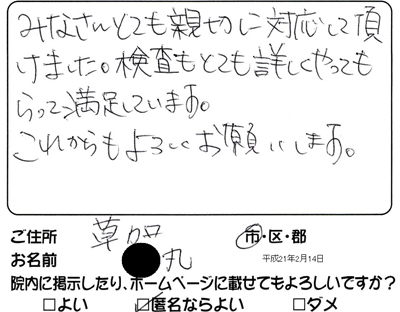 みなさんとても親切に対応して頂
けました。検査もとても詳しくやっても
らって満足しています。
これからもよろしくお願いします。
ご住所 草加 市・区・郡
お名前 丸 平成21年2月14日
院内に掲示したり、ホームページに載せてもよろしいですか？
□よい ☑匿名ならよい □ダメ